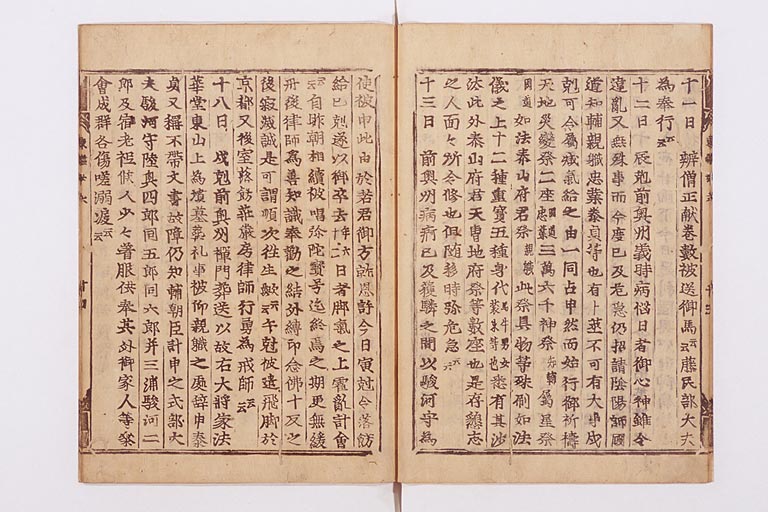 十一日　辨僧正献巻數被送御馬云云藤民部大夫
為奉行云云
十二日　辰剋前奥州義時病悩日者御心神雖令
違亂又無殊事而今度已及危急仍招請陰陽師國
道知輔親職忠業泰貞等也有卜筮不可有大事戌
剋可令属減氣給之由一同占申然而始行御祈禱
天地災變祭二座國道忠業三萬六千神祭知輔属星祭
國道如法泰山府君祭親職此祭具物等殊刷如法
儀之上十二種重寶五種身代馬牛男女装束等也悉有其沙
汰此外泰山府君天曹地府祭等數座也是存懇志
之人面々所令修也但随移時弥危急云云
十三日　前奥州病痾已及獲麟之間以駿河守為
使被申此由於若君御方就恩許今日寅剋令落飾
給巳剋遂以御卒去年六十二日者脚氣之上霍亂計會
云云自昨朝相續被唱弥陀寳号迄終焉之期更無緩
丹後律師為善知識奉勧之結外縛印念佛十反之
後寂滅誠是可謂順次徃生歟云云午剋被遣飛脚於
京都又後室落飾荘厳房律師行勇為戒師云云
十八日　戌剋前奥州禅門葬送以故右大将家法
華堂東山上為墳墓葬礼事被仰親職之處辞申泰
貞又稱不帶文書故障仍知輔朝臣計申之式部大
夫駿河守陸奥四郎同五郎同六郎并三浦駿河二
郎及宿老祗候人少々著服供奉其外御家人等參
會成群各傷嗟溺涙云云